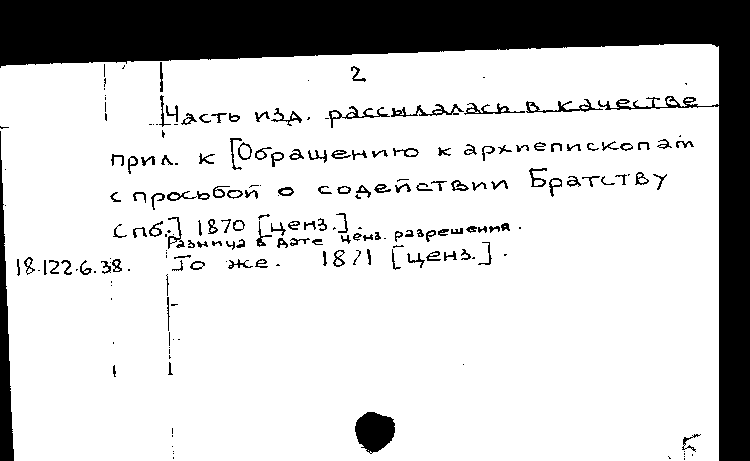 2
Часть изд. рассылалась в качестве
прил. к [Обращению к архиепископам
с просьбой о содействии Братству
Спб.] 1870 [ценз.].
Разница в дате ценз. разрешения.
18.122.6.38. То же. 1871 [ценз.].
Б